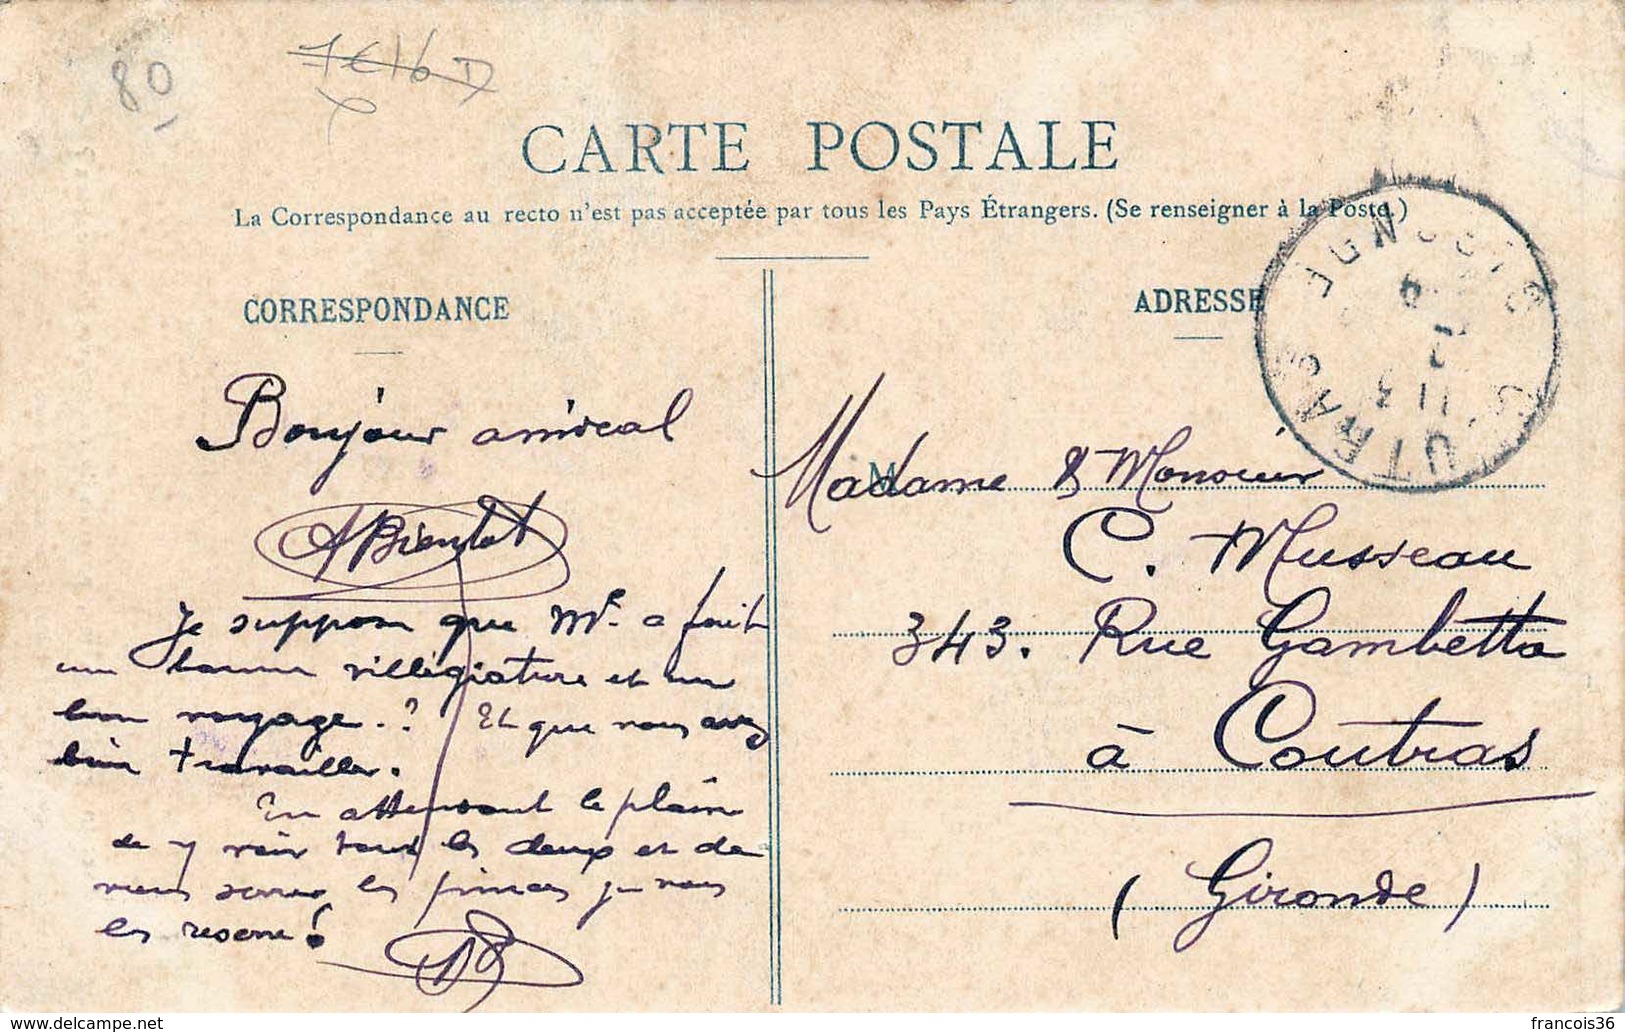 80
CARTE POSTALE
La Correspondance au recto n'est pas acceptée par tous les Pays Étrangers. (Se renseigner à la Poste.)
CORRESPONDANCE
ADRESSE
COUTRAS GIRONDE
Bonjour amical
A Bientot
Je suppose que Mr a fait
une bonne villégiature et un
bon voyage.? Et que vous avez
bien travailler.
En attendant le plaisir
de y voir tout les deux et de
vous serrer les pinces je vous
les reserve!
AB
M
Madame & Monsieur
C. Musseau
343. Rue Gambetta
à Coutras
(Gironde)
francois36